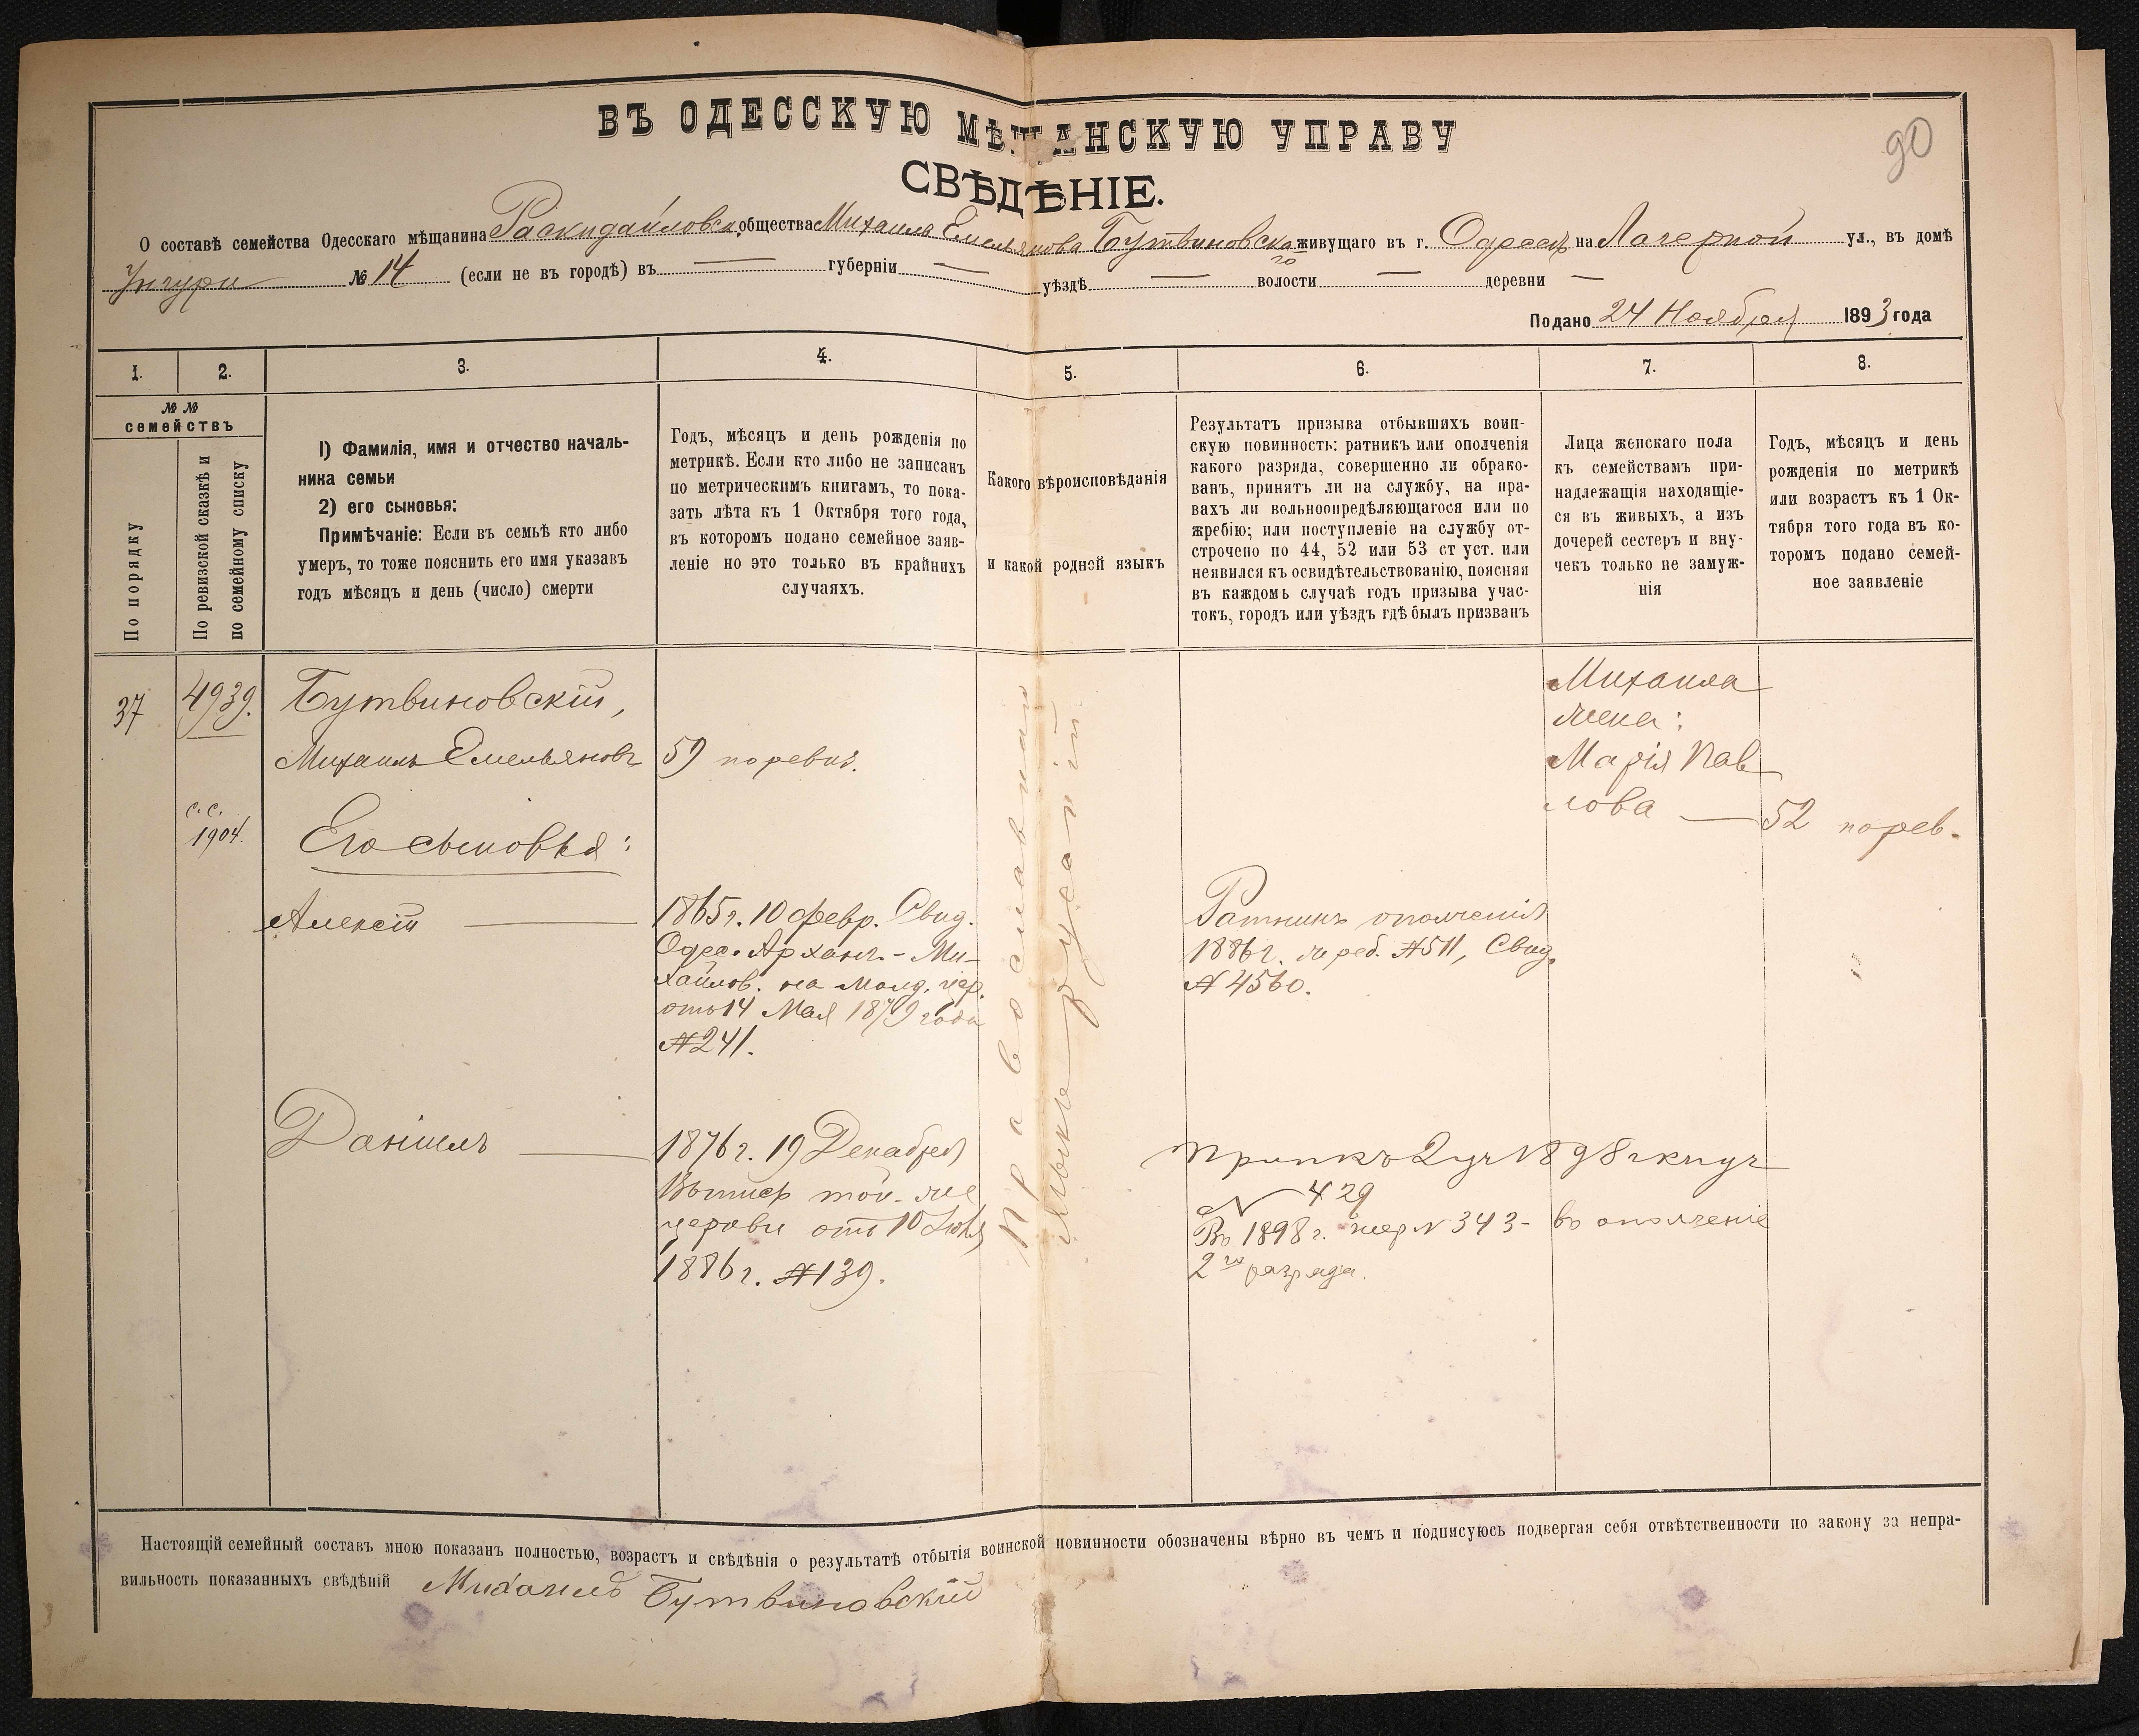 ВЪ ОДЕССКУЮ МѢЩАНСКУЮ УПРАВУ
90
СВѢДѢНІЕ.
О составѣ семейства Одесскаго мѣщанина Раскидайловск. общества Михаила Емельянова Бутвиновскаго живущаго въ г. Одессѣ на Лагерной ул., въ домѣ
Унгури № 14 (если не въ городѣ) въ — губерніи — уѣздѣ — волости — деревни —
Подано 24 Ноября 1893 года
1. 2. 3. 4. 5. 6. 7. 8.
№ №
семействъ
По порядку
По ревизской сказкѣ и
по семейному списку
1) Фамилія, имя и отчество началь-
ника семьи
2) его сыновья:
Примѣчаніе: Если въ семьѣ кто либо
умеръ, то тоже пояснить его имя указавъ
годъ мѣсяцъ и день (число) смерти
Годъ, мѣсяцъ и день рожденія по
метрикѣ. Если кто либо не записанъ
по метрическимъ книгамъ, то пока-
зать лѣта къ 1 Октября того года,
въ которомъ подано семейное заяв-
леніе но это только въ крайнихъ
случаяхъ.
Какого вѣроисповѣданія
и какой родной языкъ
Результатъ призыва отбывшихъ воин-
скую повинность: ратникъ или ополченія
какого разряда, совершенно ли обрако-
ванъ, принятъ ли на службу, на пра-
вахъ ли вольноопредѣляющагося или по
жребію; или поступленіе на службу от-
строчено по 44, 52 или 53 ст уст. или
неявился къ освидѣтельствованію, поясняя
въ каждомъ случаѣ годъ призыва учас-
токъ, городъ или уѣздъ гдѣ былъ призванъ
Лица женскаго пола
къ семействамъ при-
надлежащія находящіе-
ся въ живыхъ, а изъ
дочерей сестеръ и вну-
чекъ только не замуж-
нія
Годъ, мѣсяцъ и день
рожденія по метрикѣ
или возрастъ къ 1 Ок-
тября того года въ ко-
торомъ подано семей-
ное заявленіе
37
4939.
с. с.
1904.
Бутвиновскій,
Михаилъ Емельяновъ
59 по ревиз.
Его сыновья:
Алексѣй —
1865 г. 10 февр. Свид.
Одес. Арханг.-Ми-
хайлов. на Молд. цер.
отъ 14 Мая 1879 года
№ 241.
Даніилъ —
1876 г. 19 Декабря
Выпись той-же
церкви отъ 10 Іюля
1886 г. № 139.
Православная
языкъ русскій
Ратникъ ополченія
1886 г. жреб. № 511, Свид.
№ 4560.
Приписъ 2 уч 1898 г
№ 429
Въ 1898 г. жер № 343 - въ ополченіе
2го разряда.
Михаила
жена:
Марія Пав
лова — 52 по рев.
Настоящій семейный составъ мною показанъ полностью, возрастъ и свѣдѣнія о результатѣ отбытія воинской повинности обозначены вѣрно въ чемъ и подписуюсь подвергая себя отвѣтственности по закону за непра-
вильность показанныхъ свѣдѣній Михаилъ Бутвиновскій